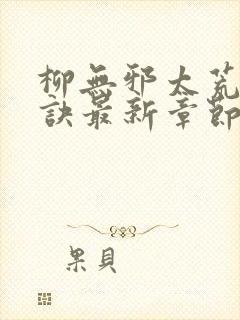 柳無邪太荒
訣最新章節
果貝